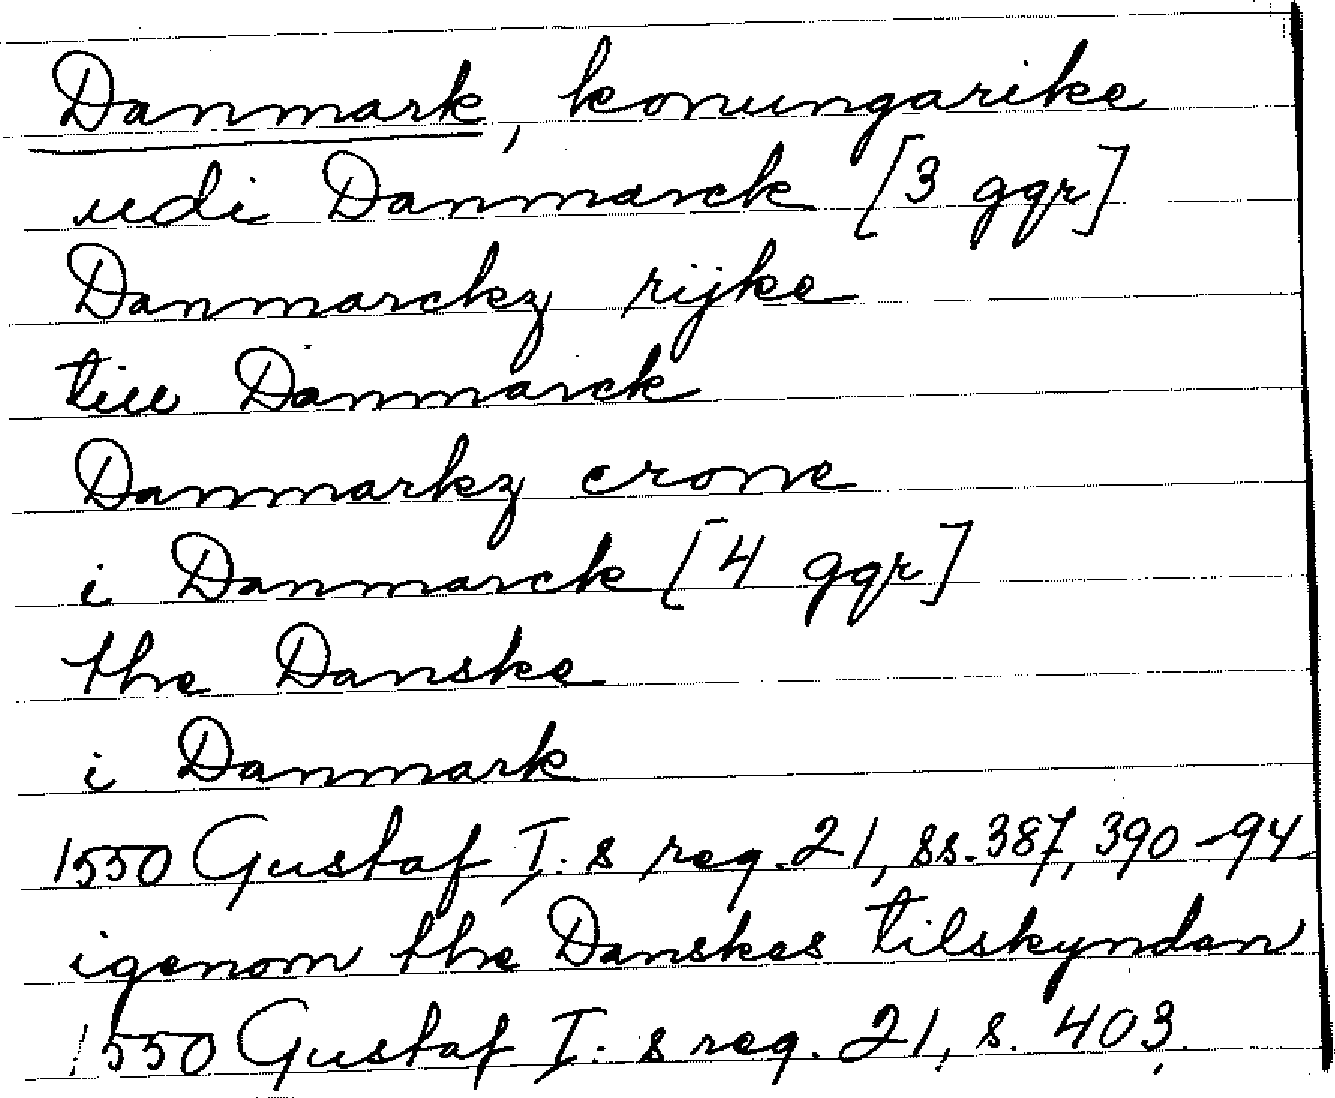 Danmark, konungarike
udi Danmarck [3 ggr]
Danmarckz rijke
till Danmarck
Danmarkz crone
i Danmarck [4 ggr]
the Danske
i Danmark
1550 Gustaf I:s reg. 21, ss. 387, 390-94
igenom the Danskes tilskyndan
1550 Gustaf I:s reg. 21, s. 403.